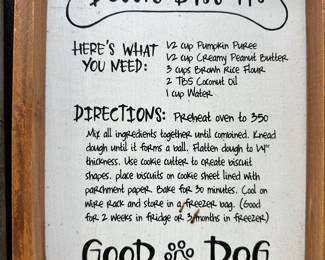 HERE'S WHAT
YOU NEED:
1/2 cup Pumpkin Puree
1/2 cup Creamy Peanut Butter
3 cups Brown Rice Flour
2 TBS Coconut Oil
1 cup Water
DIRECTIONS: Preheat oven to 350
Mix all ingredients together until combined. Knead
dough until it forms a ball. Flatten dough to 1/4"
thickness. Use cookie cutter to create biscuit
shapes. place biscuits on cookie sheet lined with
parchment paper. Bake for 30 minutes. Cool on
wire rack and store in a freezer bag. (Good
for 2 weeks in fridge or 3 months in freezer)
GOOD DOG